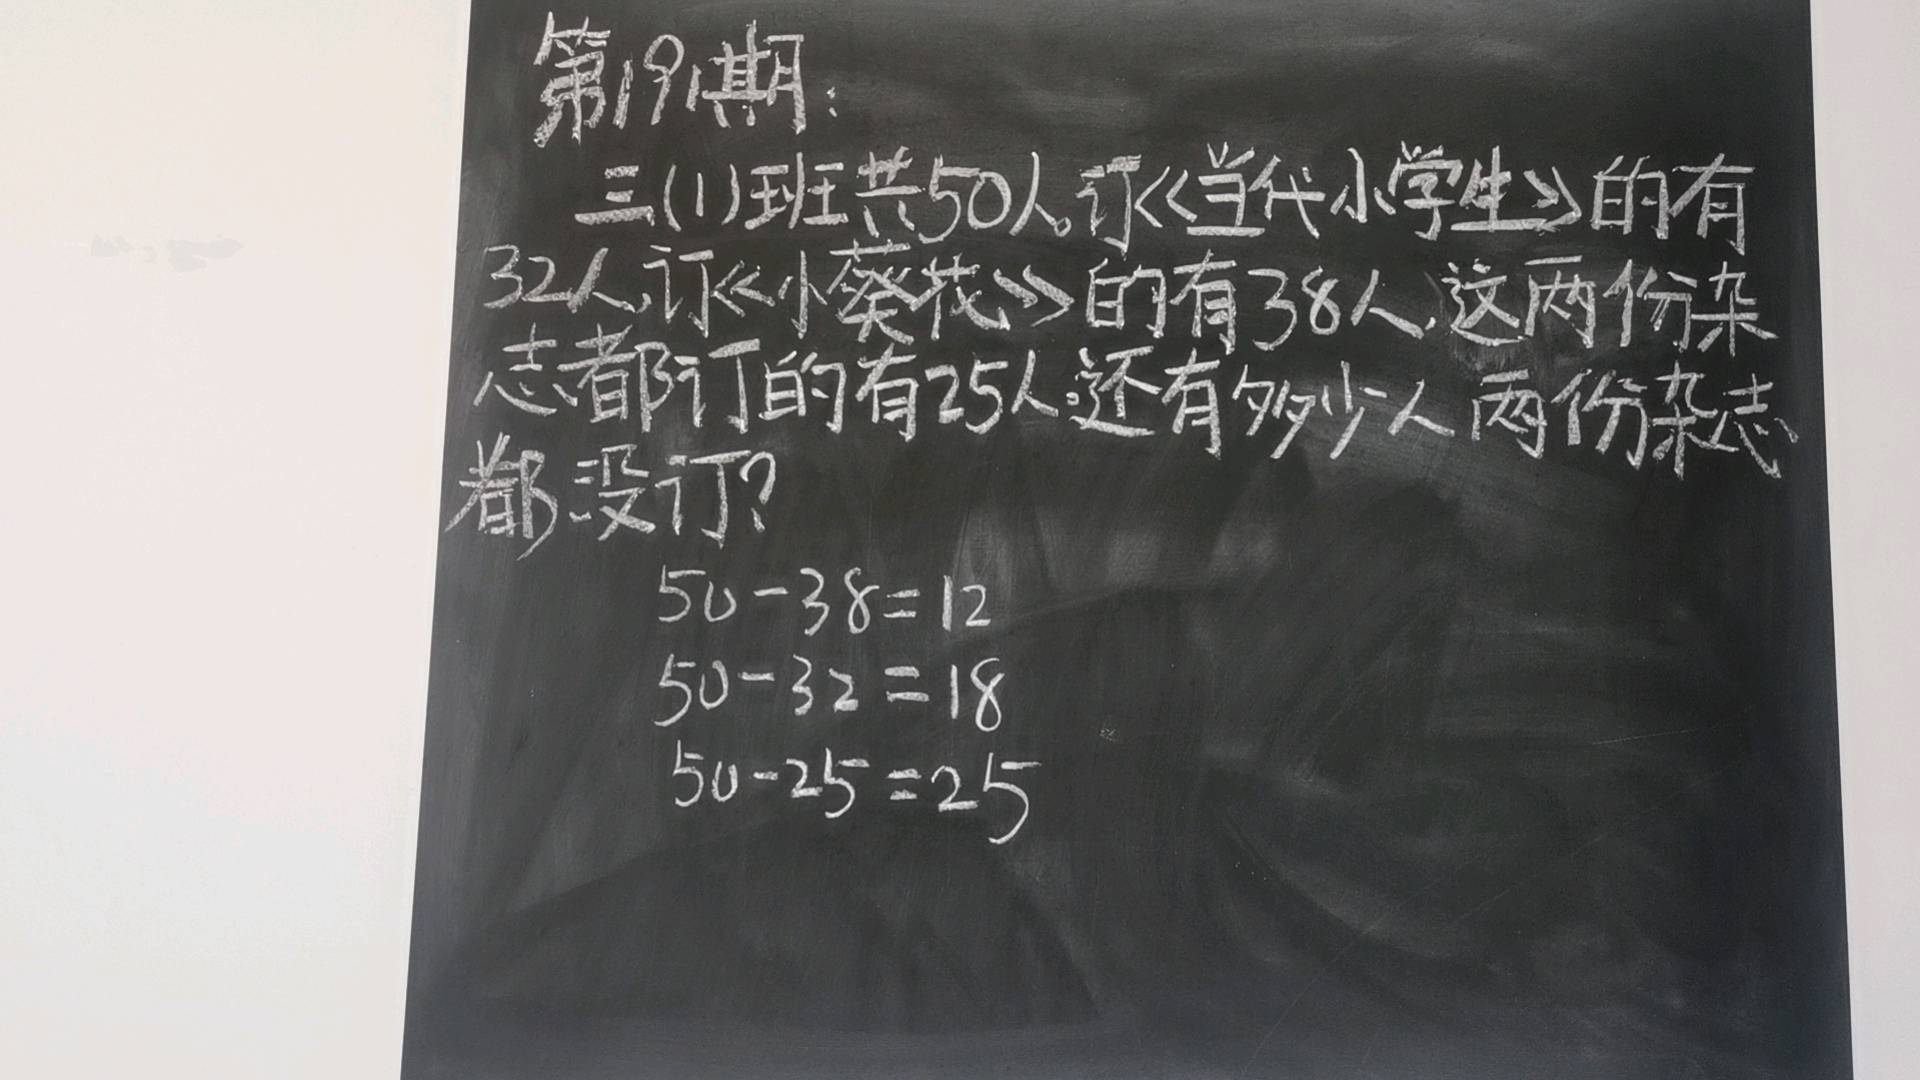 第191期:
三(1)班共50人。订《当代小学生》的有
32人,订《小葵花》的有38人,这两份杂
志都订的有25人。还有多少人两份杂志
都没订?
50-38=12
50-32=18
50-25=25